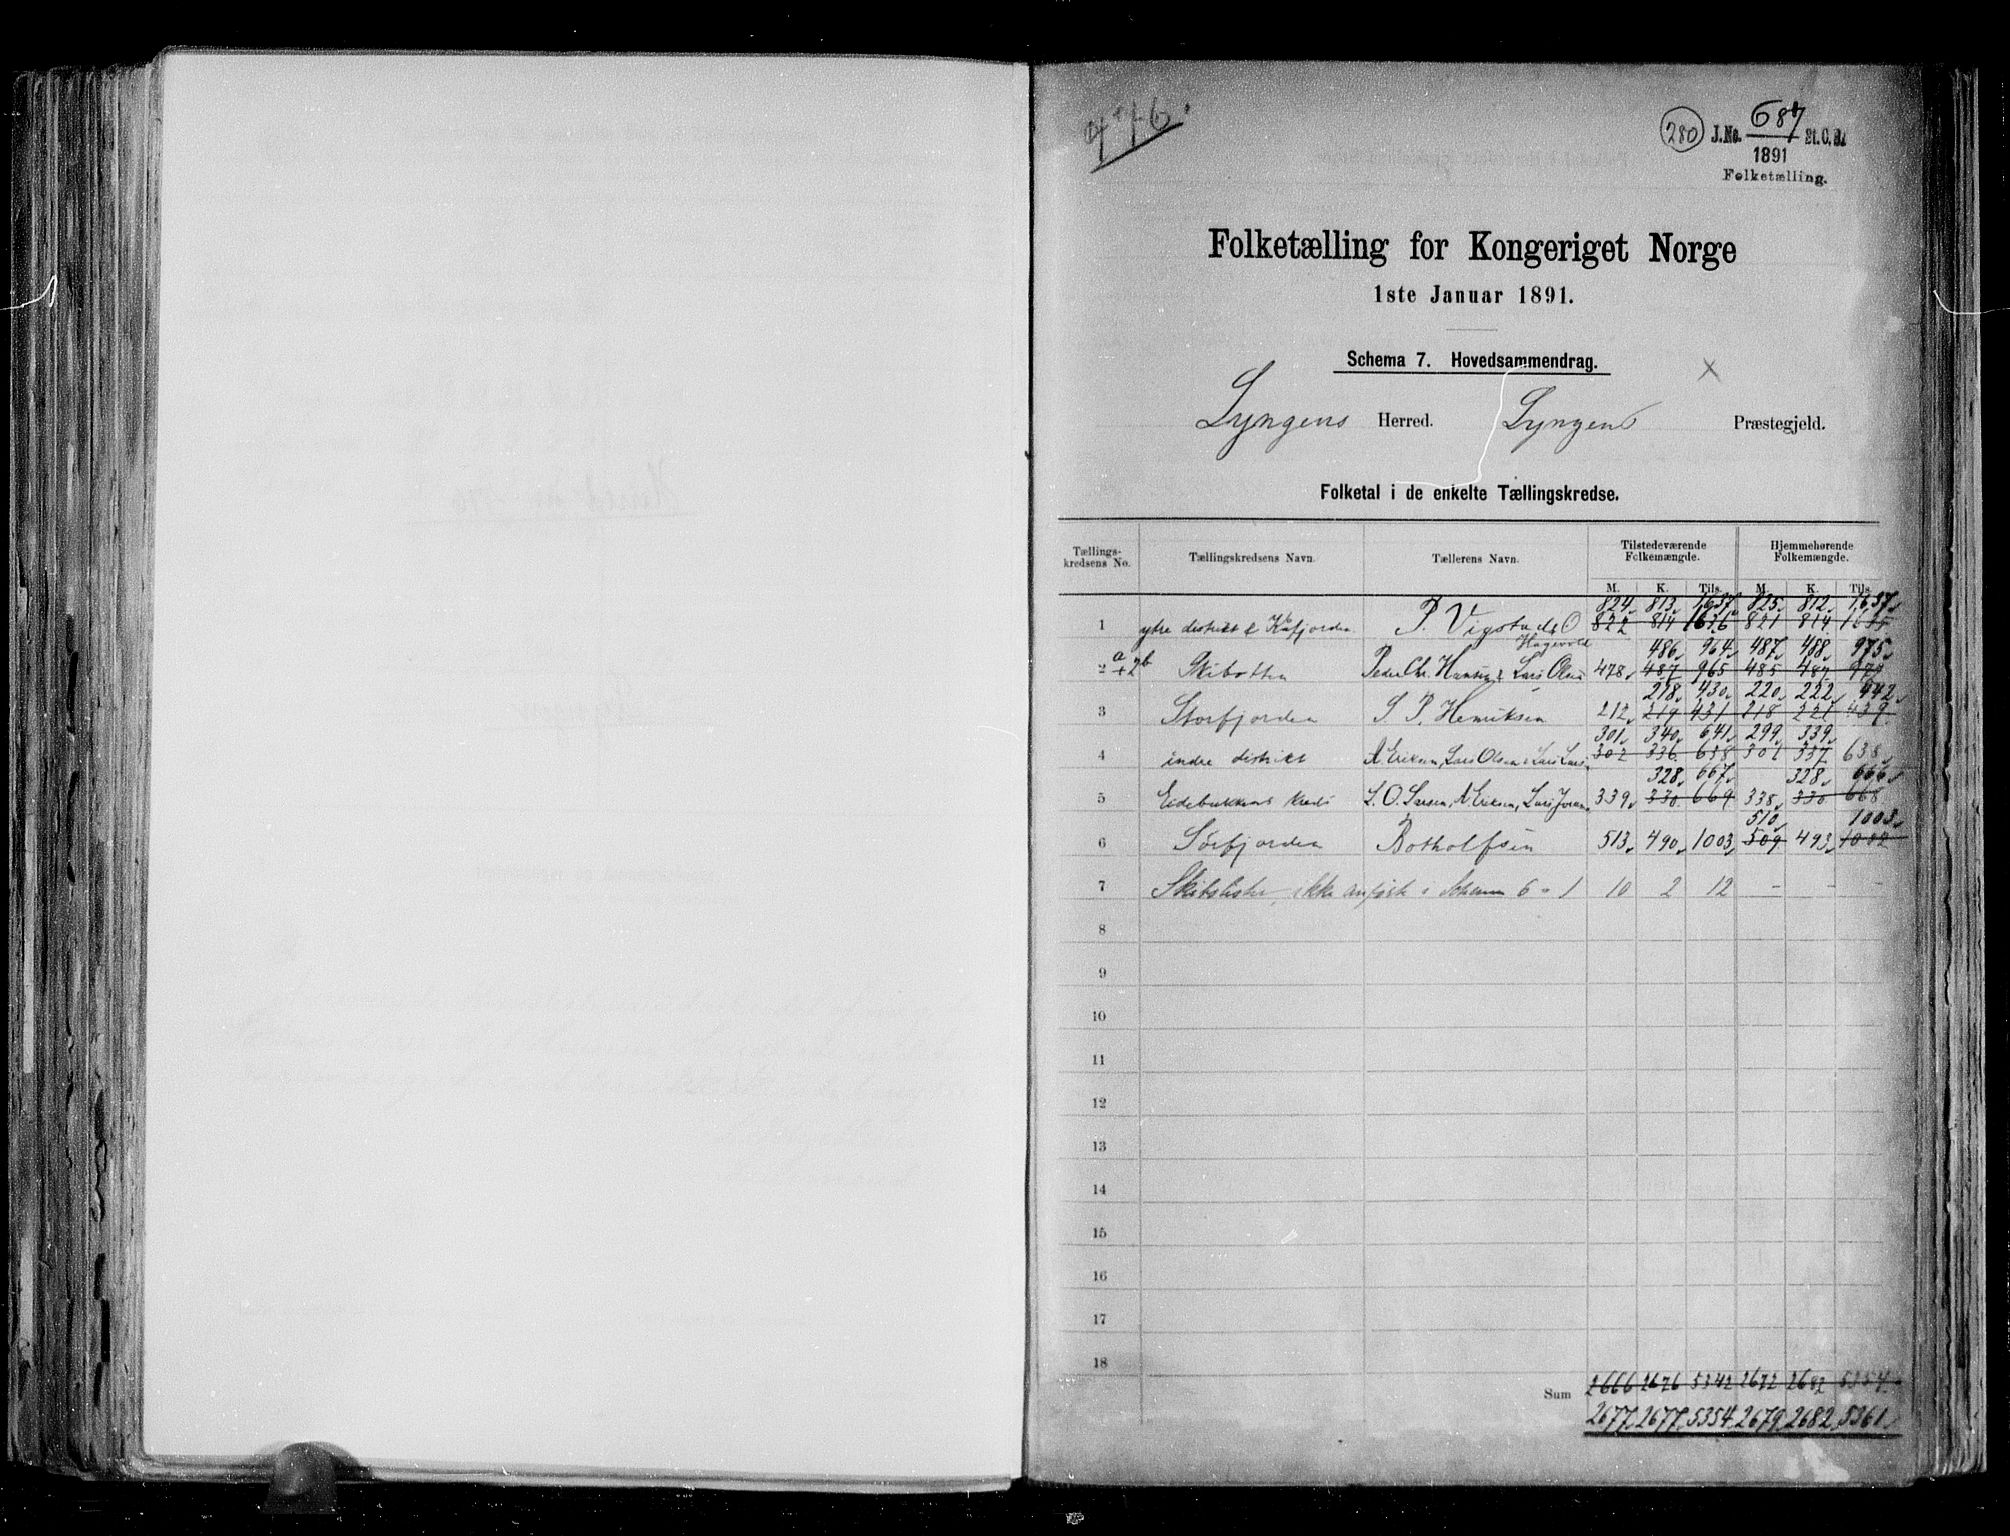 280 J.No. 687 St. C. B.
1891
Folketælling.
Folketælling for Kongeriget Norge
1ste Januar 1891.
Schema 7. Hovedsammendrag.
Lyngens Herred. Lyngens Præstegjeld.
Folketal i de enkelte Tællingskredse.
Tællings-kredsens No. Tællingskredsens Navn. Tællerens Navn. Tilstedeværende Folkemængde. Hjemmehørende Folkemængde.
M. K. Tils. M. K. Tils.
824 813 1,637 825 812 1,637
1 ytre distrikt & Kåfjorden P. Vigstad & O Hagevold 822 814 1636 821 814 1635
486 964 487 488 975
2 a + 2 b Skibotten Peder Chr. Hansen & Lars Olsen 478 487 965 485 487 972
218 430 220 222 442
3 Storfjorden S. P. Henriksen 212 219 431 218 221 439
301 340 641 299 339
4 indre distrikt A Eriksen, Lars Olsen & Lars Larsen 302 336 638 301 337 638
328 667 328 666
5 Eidebakkens kreds L. O. Larsen, A Eriksen, Lars 339 330 669 338 330 668
510 1003
6 Sörfjorden Botholfsen 513 490 1003 509 493 1002
7 Skibslister, ikke anførte i Schema 6 - 1 10 2 12 - - -
8
9
10
11
12
13
14
15
16
17
18
Sum 2666 2676 5342 2672 2682 5354
2677 2677 5354 2679 2682 5361